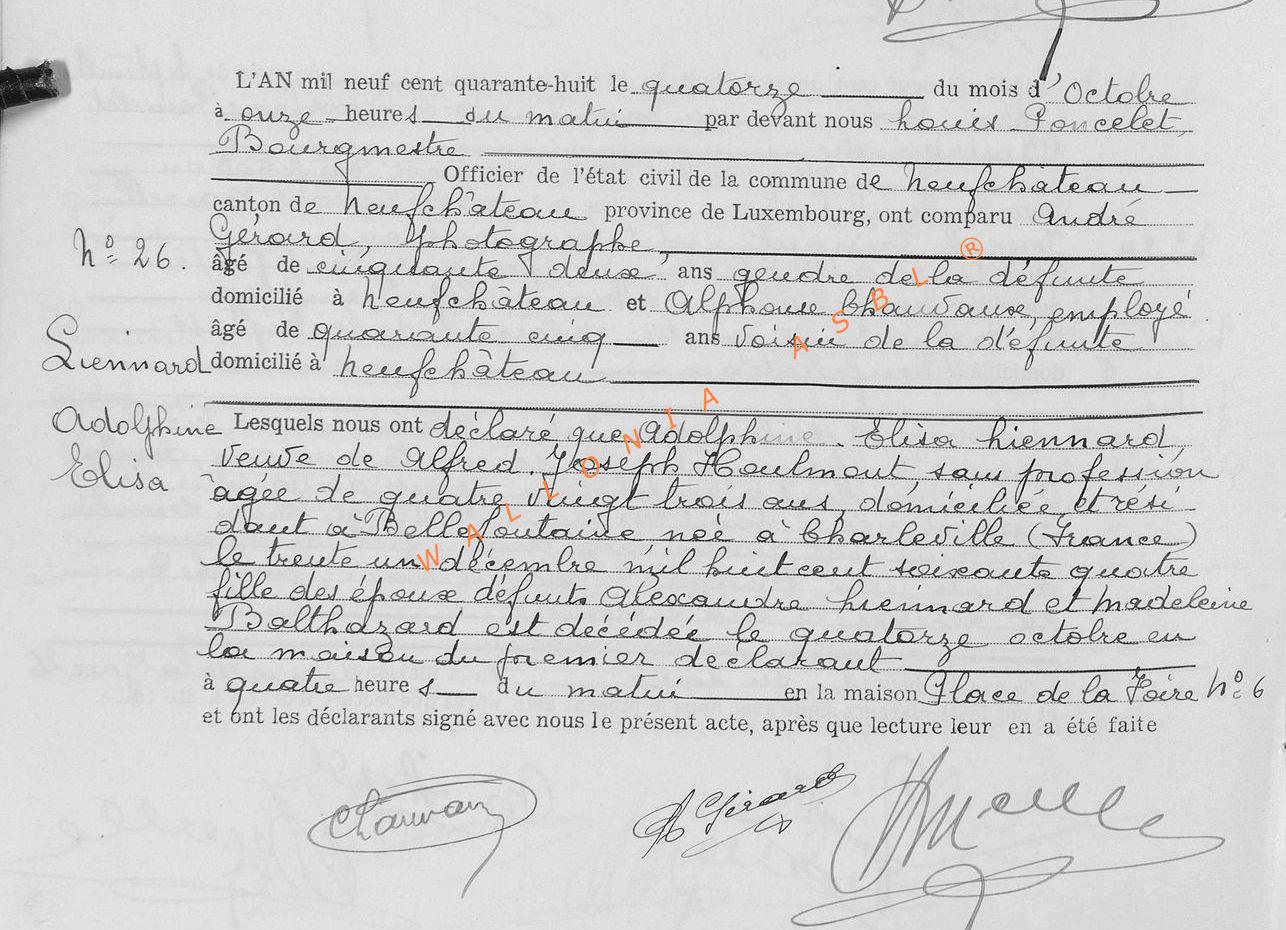 L'AN mil neuf cent quarante-huit le quatorze du mois d'Octobre
à onze heures du matin par devant nous Louis Poncelet,
Bourgmestre
Officier de l'état civil de la commune de Neufchâteau
canton de Neufchâteau province de Luxembourg, ont comparu André
Gérard, photographe,
N° 26.
âgé de cinquante deux ans gendre de la défunte
domicilié à Neufchâteau et Alphonse Chauvaux, employé
âgé de quarante cinq ans voisin de la défunte
Liennard
domicilié à Neufchâteau
Adolphine
Lesquels nous ont déclaré que Adolphine. Elisa Liennard
Elisa
veuve de Alfred. Joseph Houlmont, sans profession
agée de quatre vingt trois ans, domiciliée et rési
dant à Bellefontaine née à Charleville (France)
le trente un décembre mil huit cent soixante quatre
fille des époux défunts Alexandre Liennard et Madeleine
Balthazard est décédée le quatorze octobre en
la maison du premier déclarant
à quatre heures du matin en la maison Place de la Foire N° 6
et ont les déclarants signé avec nous le présent acte, après que lecture leur en a été faite
Chauvaux A Gérard
WALLONIA ASBL ®